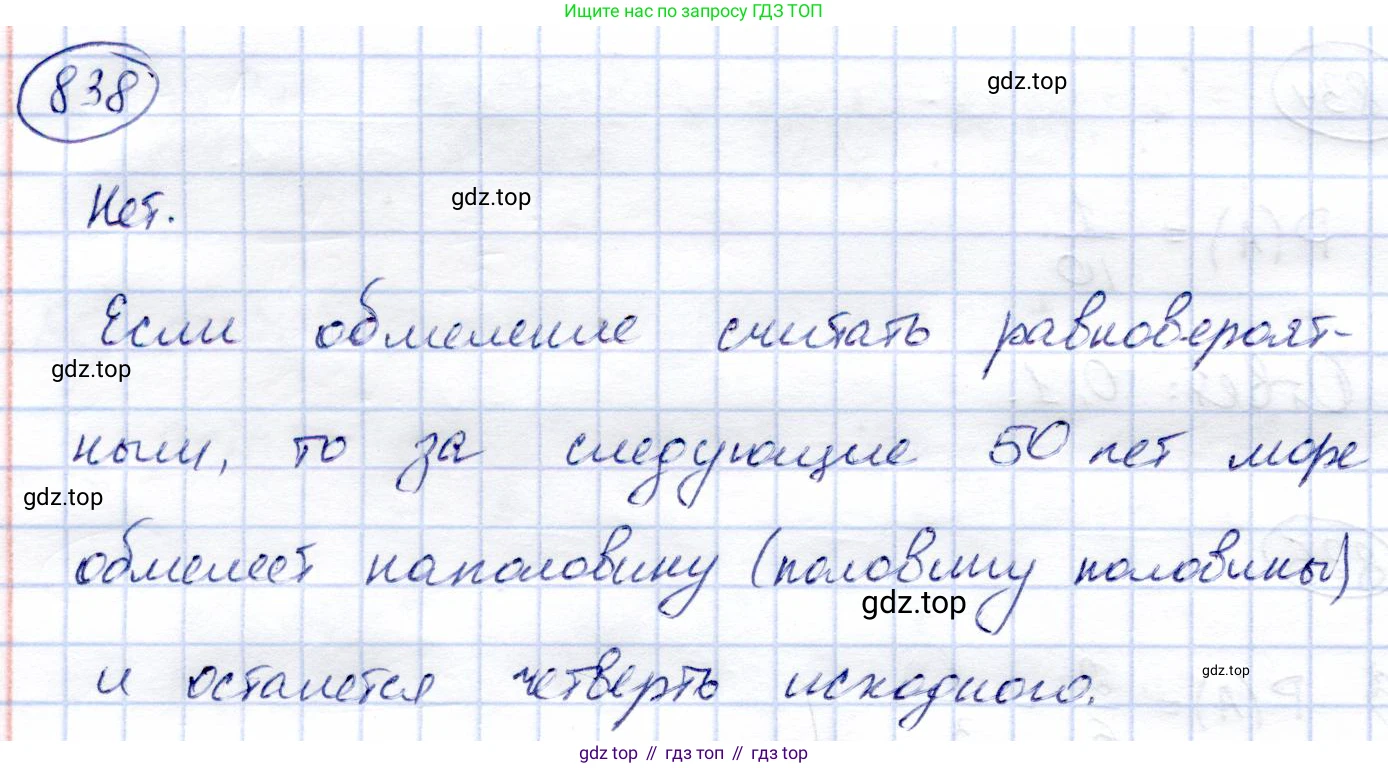 Ищите нас по запросу ГДЗ ТОП
838
gdz.top
Нет.
gdz.top
Если обмеление считать равновероят-
gdz.top
ным, то за следующие 50 лет море
gdz.top
обмелеет наполовину (половину половины)
gdz.top
и останется четверть исходного.
gdz.top
gdz top // гдз топ // gdz top